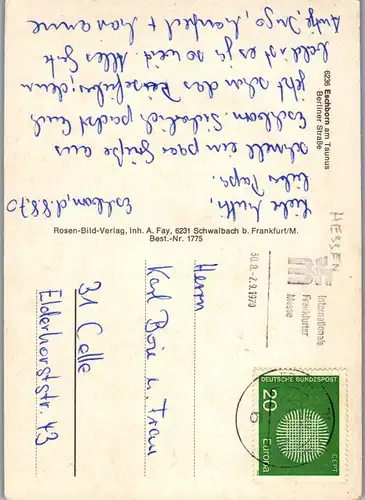 Eschborn, d. 8.8.70
Liebe Mutti,
lieber Papa.
schnell ein paar Grüße aus
Eschborn. Sicherlich packt Euch
jetzt schon das Reisefieber, denn
bald ist es ja so weit. Alles Gute
Antje, Ingo, Manfred + Marianne
6236 Eschborn am Taunus
Berliner Straße
Rosen-Bild-Verlag, Inh. A. Fay, 6231 Schwalbach b. Frankfurt/M.
Best.-Nr. 1775
HESSEN
Internationale
Frankfurter
Messe
30.8.-2.9.1970
DEUTSCHE BUNDESPOST
20
CEPT
Europa
Herrn
Karl Boie u. Frau
31 Celle
Elderhorststr. 43